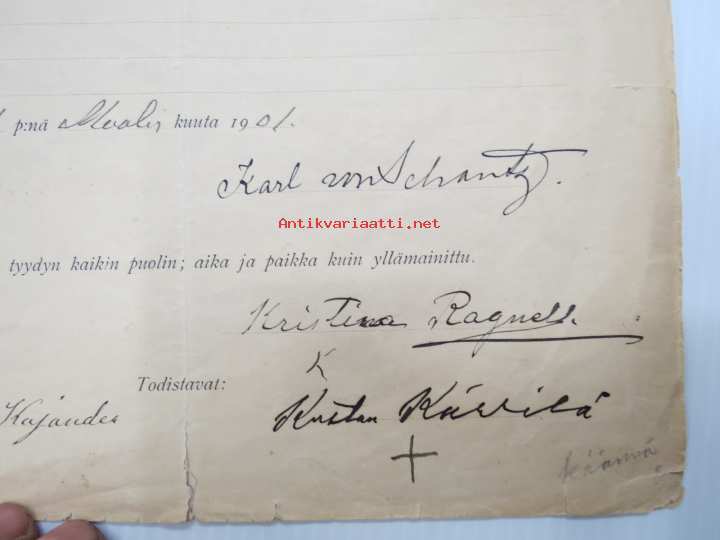 p:nä Maalis kuuta 1901.
Karl von Schantz.
Antikvariaatti.net
tyydyn kaikin puolin; aika ja paikka kuin yllämainittu.
Kristina Ragnell.
K
Todistavat:
Kajander Kustaa Kärrilä
+
käännä